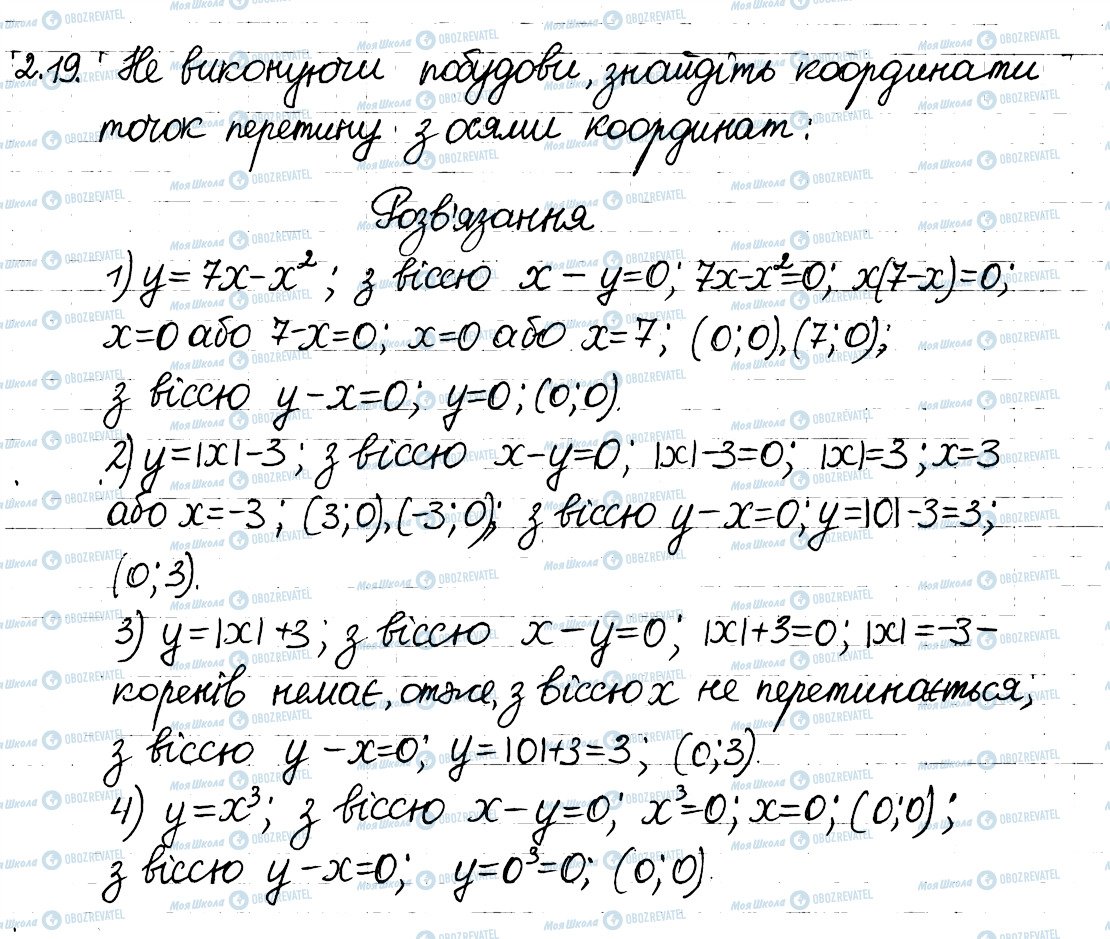 2.19. Не виконуючи побудови, знайдіть координати
точок перетину з осями координат:
Розв'язання
1) y = 7x - x²; з віссю x - y=0; 7x-x²=0; x(7-x)=0;
x=0 або 7-x=0; x=0 або x=7; (0;0), (7;0);
з віссю y - x=0; y=0; (0;0).
2) y=|x|-3; з віссю x-y=0; |x|-3=0; |x|=3; x=3
або x=-3; (3;0), (-3;0); з віссю y-x=0; y=|0|-3=3;
(0;3).
3) y=|x|+3; з віссю x-y=0; |x|+3=0; |x|=-3 -
коренів немає, отже, з віссю x не перетинається;
з віссю y -x=0; y=|0|+3=3; (0;3).
4) y=x³; з віссю x-y=0; x³=0; x=0; (0;0);
з віссю y-x=0; y=0³=0; (0;0).